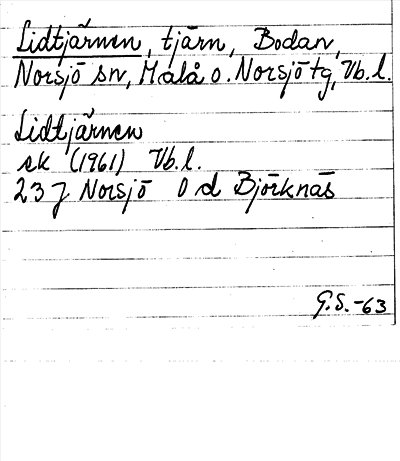 Lidtjärnen, tjärn, Bodan,
Norsjö sn, Malå o. Norsjö tg, Vb.l.
Lidtjärnen
ek (1961) Vb.l.
23 J Norsjö O d Björknäs
G.S.-63